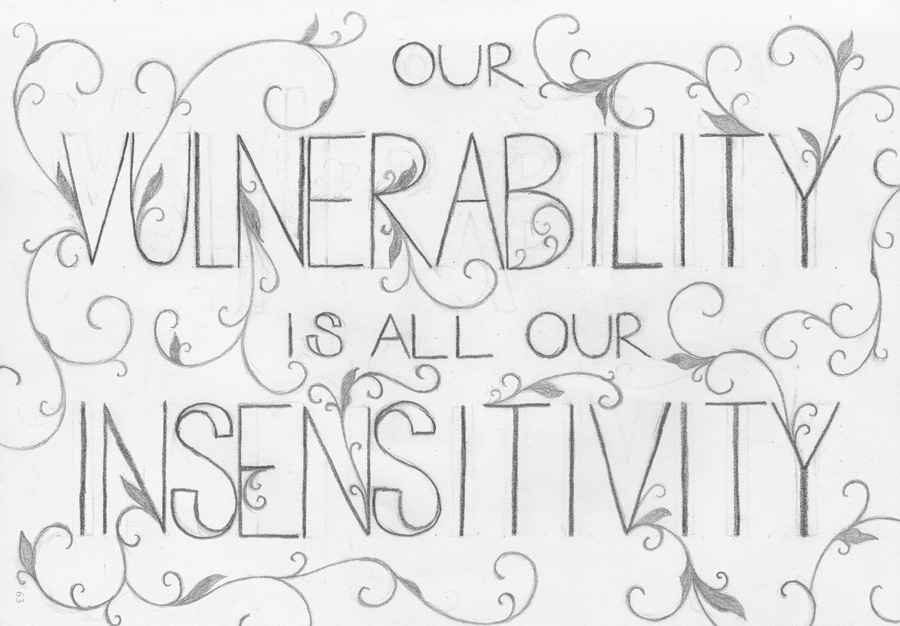 OUR
VULNERABILITY
IS ALL OUR
INSENSITIVITY
63